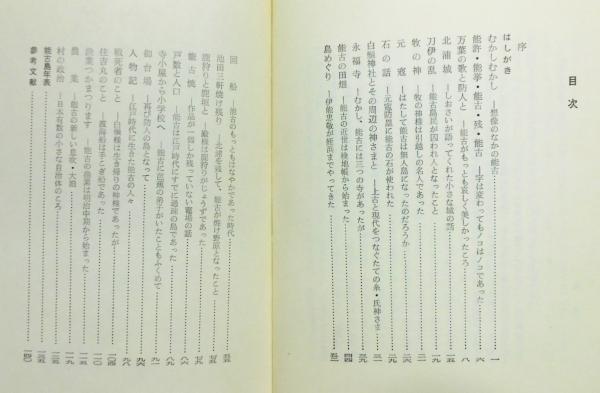 目次
序
はしがき
むかしむかし ―想像のなかの能古……一
能許・能挙・能古・残・能古 ―字は変わってもノコはノコであった……六
万葉の歌と防人 ―能古がもっとも哀しく美しかったころ……八
北浦城 ―しおさいが語ってくれた小さな城の話……一五
刀伊の乱 ―能古島民が囚われ人となったこと……一九
牧の神 ―牧の神様は引越しの名人であった……
元寇 ―はたして能古は無人島になったのだろうか……二六
石の話 ―元寇防塁に能古の石が使われた……二九
白鬚神社とその周辺の神さまと ―上古と現代をつなぐたての糸・氏神さま……三一
永福寺 ―むかし、能古には三つの寺があったが……
能古の田畑 ―能古の近世は検地帳から始まった……四四
島めぐり ―伊能忠敬が姪浜までやってきた……五二
廻船 ―能古のもっともはなやかであった時代……五五
池田三軒焼け残り ―北浦を残して、能古が焼け野原となったこと……
鹿狩りと鹿垣と ―殿様は鹿狩りがじょうずであった……七九
能古焼 ―作品が一個しか残っていない竃場の話……八六
戸数と人口 ―能古は江戸時代にすでに過疎の島であった……八九
寺小屋から小学校へ ―能古に芭蕉の弟子がいたこともふくめて……九一
御台場 ―再び防人の島となって……九六
人物記 ―江戸時代に生きた能古の人々……九八
戦死者のこと ―白鬚様は生き帰りの神様であったが……一〇四
住吉丸のこと ―渡海船は手こぎ船であった……
漁業つかまつります ―能古の漁業は明治中期から始まった……一一〇
農業 ―能古の新しい息吹・大泊……一一九
村の政治 ―日本有数の小さな自治体のころ……一二五
能古島年表……一三五
参考文献……一四〇